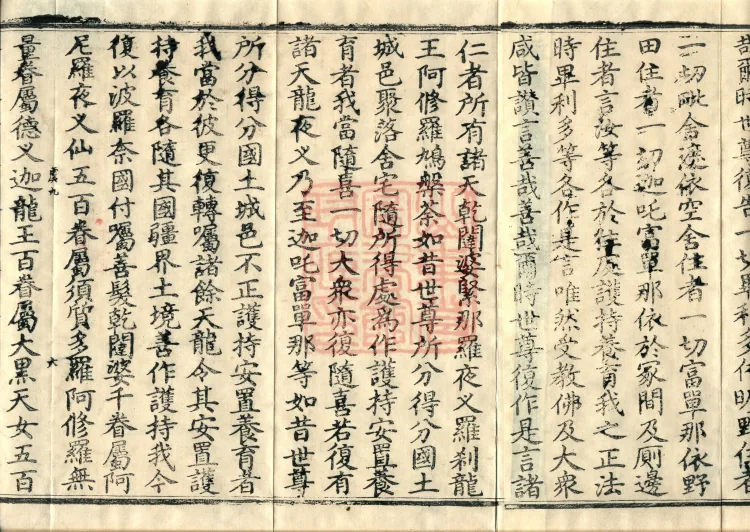 哉爾時世尊復告一切畢利多依明野住者
一切毗舍遮依空舍住者一切富單那依野
田住者一切迦吒富單那依於冢間及厠邊
住者言汝等各於住處護持養育我之正法
時畢利多等各作是言唯然受教佛及大衆
咸皆讃言善哉善哉爾時世尊復作是言諸
仁者所有諸天乾闥婆緊那羅夜义羅刹龍
王阿修羅鳩槃茶如昔世尊所分得分國土
城邑聚落舍宅隨所得處爲作護持安置養
育者我當隨喜一切大衆亦復隨喜若復有
諸天龍夜义乃至迦吒富單那等如昔世尊
所分得分國土城邑不正護持安置養育者
我當於彼更復轉囑諸餘天龍令其安置護
持養育各隨其國疆界土境善作護持我今
復以波羅奈國付囑善髮乾闥婆千眷屬阿
尼羅夜义仙五百眷屬須質多羅阿修羅無
虞九
六
量眷屬德义迦龍王百眷屬大黑天女五百